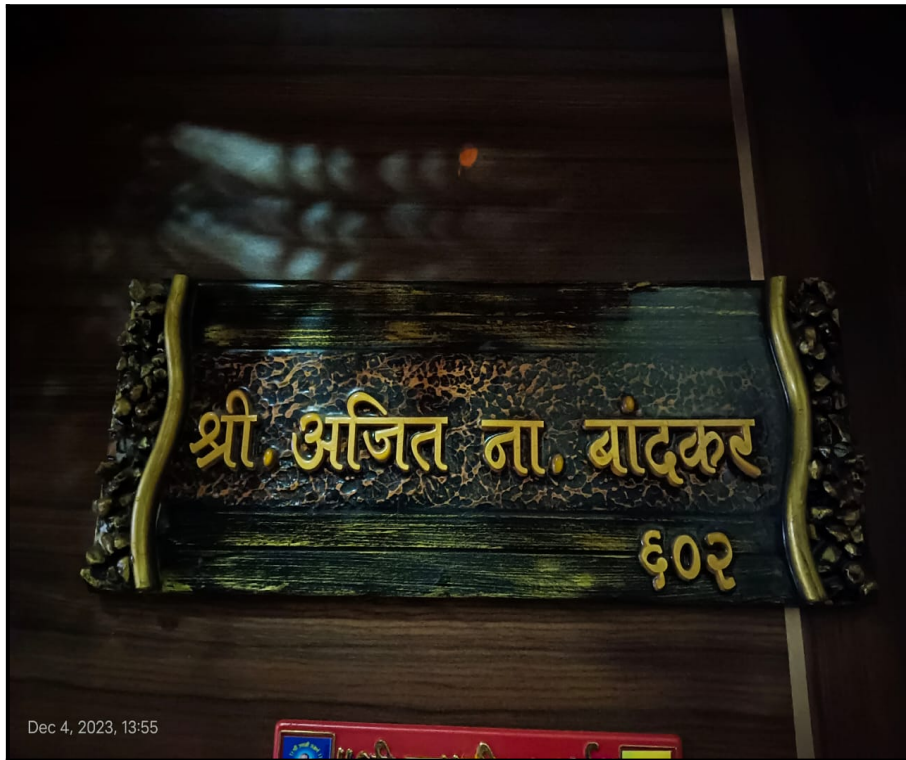 श्री. अजित ना. बांदकर
६०२
Dec 4, 2023, 13:55